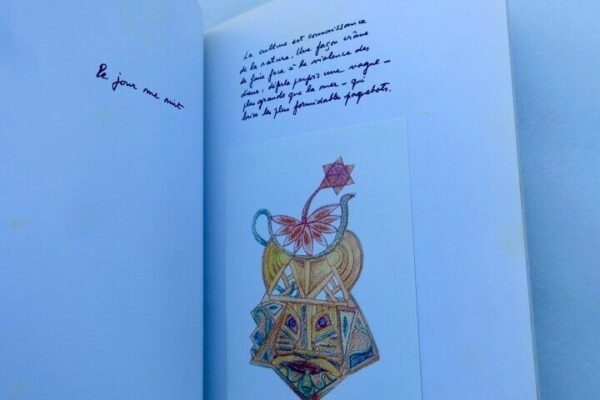 Le jour me nuit
La culture est connaissance
de la nature. Une façon crâne
de faire face à la violence des
dieux : parfois une vague –
plus grande que la mer – qui
brise les plus formidables paquebots.